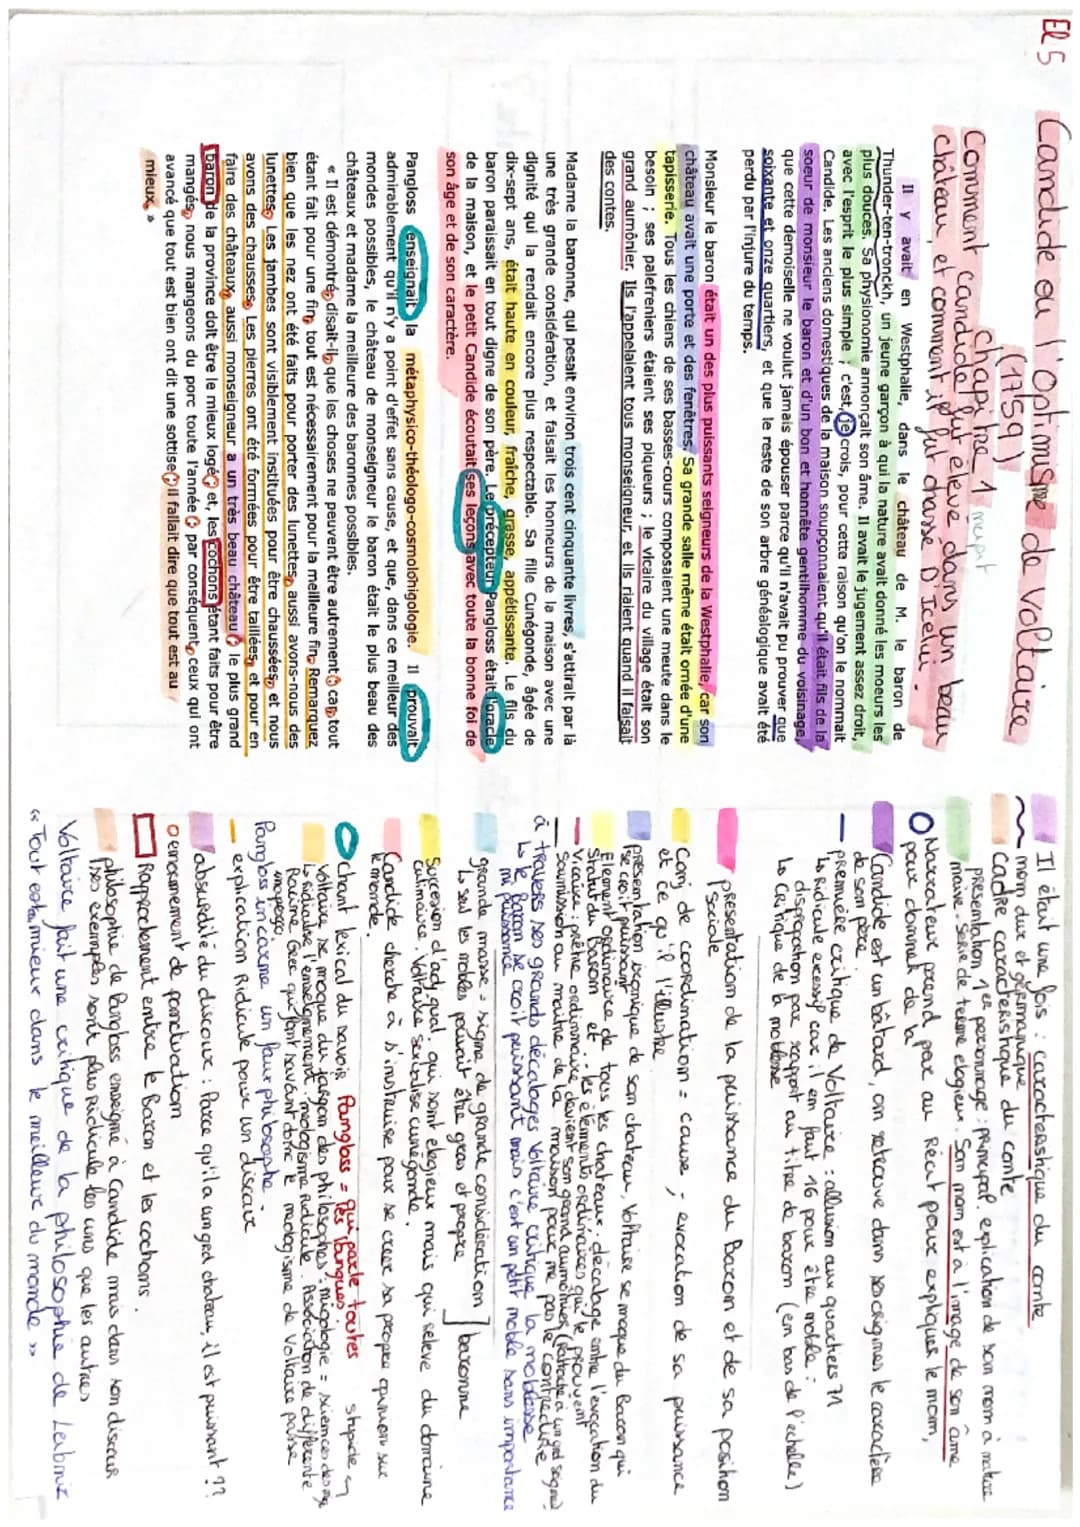 El 5
Candide ou l'Optimisme de Voltaire
(1759)
Chapitre 1
Comment candide fut élevé dans un beau
château, et comment il fut chassé D'Icelui.
Il y avait en Westphalie, dans le château de M. le baron de
Thunder-ten-tronckh, un jeune garçon à qui la nature avait donné les moeurs les
plus douces. Sa physionomie annonçait son âme. Il avait le jugement assez droit,
avec l'esprit le plus simple ; c'est, je crois, pour cette raison qu'on le nommait
Candide. Les anciens domestiques de la maison soupçonnaient qu'il était fils de la
soeur de monsieur le baron et d'un bon et honnête gentilhomme du voisinage,
que cette demoiselle ne voulut jamais épouser parce qu'il n'avait pu prouver que
soixante et onze quartiers, et que le reste de son arbre généalogique avait été
perdu par l'injure du temps.
Monsieur le baron était un des plus puissants seigneurs de la Westphalie, car son
château avait une porte et des fenêtres. Sa grande salle même était ornée d'une
tapisserie. Tous les chiens de ses basses-cours composaient une meute dans le
besoin ; ses palefreniers étaient ses piqueurs ; le vicaire du village était son
grand aumônier. Ils l'appelaient tous monseigneur, et ils riaient quand il faisait
des contes.
Madame la baronne, qui pesait environ trois cent cinquante livres, s'attirait par là
une très grande considération, et faisait les honneurs de la maison avec une
dignité qui la rendait encore plus respectable. Sa fille Cunégonde, âgée de
dix-sept ans, était haute en couleur, fraîche, grasse, appétissante. Le fils du
baron paraissait en tout digne de son père. Le précepteur Pangloss était l'oracle
de la maison, et le petit Candide écoutait ses leçons avec toute la bonne foi de
son âge et de son caractère.
Pangloss enseignait la métaphysico-théologo-cosmolonigologie. Il prouvait
admirablement qu'il n'y a point d'effet sans cause, et que, dans ce meilleur des
mondes possibles, le château de monseigneur le baron était le plus beau des
châteaux et madame la meilleure des baronnes possibles.
« Il est démontré, disait-il, que les choses ne peuvent être autrement : car, tout
étant fait pour une fin, tout est nécessairement pour la meilleure fin. Remarquez
bien que les nez ont été faits pour porter des lunettes, aussi avons-nous des
lunettes. Les jambes sont visiblement instituées pour être chaussées, et nous
avons des chausses. Les pierres ont été formées pour être taillées, et pour en
faire des châteaux, aussi monseigneur a un très beau château ; le plus grand
baron de la province doit être le mieux logé ; et, les cochons étant faits pour être
mangés, nous mangeons du porc toute l'année : par conséquent, ceux qui ont
avancé que tout est bien ont dit une sottise ; il fallait dire que tout est au
mieux. »
Il était une fois : caractéristique du conte
nom dur et germanique
Cadre caractéristique du conte
présentation 1er personnage : principal. explication de son nom à
naive. Série de terme elogieux. Son nom est à l'image de son âme
Narrateur prend par au Récit pour expliquer le nom,
pour donner de la
Candide est un bâtard, on retrouve dans ses origines le caractère
de son père.
première critique de Voltaire : allusion aux quartiers 71
↳ Ridicule excessif car il en faut 16 pour être noble :
disproportion par rapport au titre de baron (en bas de l'echelle)
↳ Critique de la noblesse
présentation de la puissance du Baron et de sa position
sociale
Conj de coordination = cause, evocation de sa puissance
et ce qu'il l'illustre
présentation ironique de son chateau, Voltaire se moque du Baron qui
se croit puissant
Element ordinaire de tous les chateaux. décalage entre l'évocation du
Statut du Baron et les éléments ordinaires qui le prouvent
Vicaire : prêtre ordinaire devient son grand aumônier
soumission au maitre de la maison pour ne pas le contredire
à travers ses grands décalages Voltaire critique la noblesse
↳ le Baron se croit puissant mais c'est un petit noble sans importance
ni puissance
grande masse = signe de grande considération
↳ seul les nobles pouvait être gras et propre
baronne
Succession d'adj. qual. qui sont elogieux mais qui releve du domaine
culinaire. Voltaire sexualise cunégonde.
Candide cherche à s'instruire pour se creer sa propre opinion sur
le monde.
Chant lexical du savoir Pangloss = qui parle toutes les langues
stupide
Voltaire se moque du jargon des philosophes.
↳ Ridiculise l'enseignement. néologisme Ridicule. Association de differente
Racine Grec qui font savant donc le néologisme de Voltaire passe
inaperçu.
Pangloss incarne un faux philosophe.
explication Ridicule pour un discour
absurdité du discour : Parce qu'il a un grd chateau, il est puissant ??
enormement de ponctuation
Rapprochement entre le Baron et les cochons.
philosophie de Pangloss enseigné à Candide mais dans son discour
ses exemples sont plus ridicule les uns que les autres
Voltaire fait une critique de la philosophie de Leibniz
« Tout est au mieux dans le meilleur du monde »